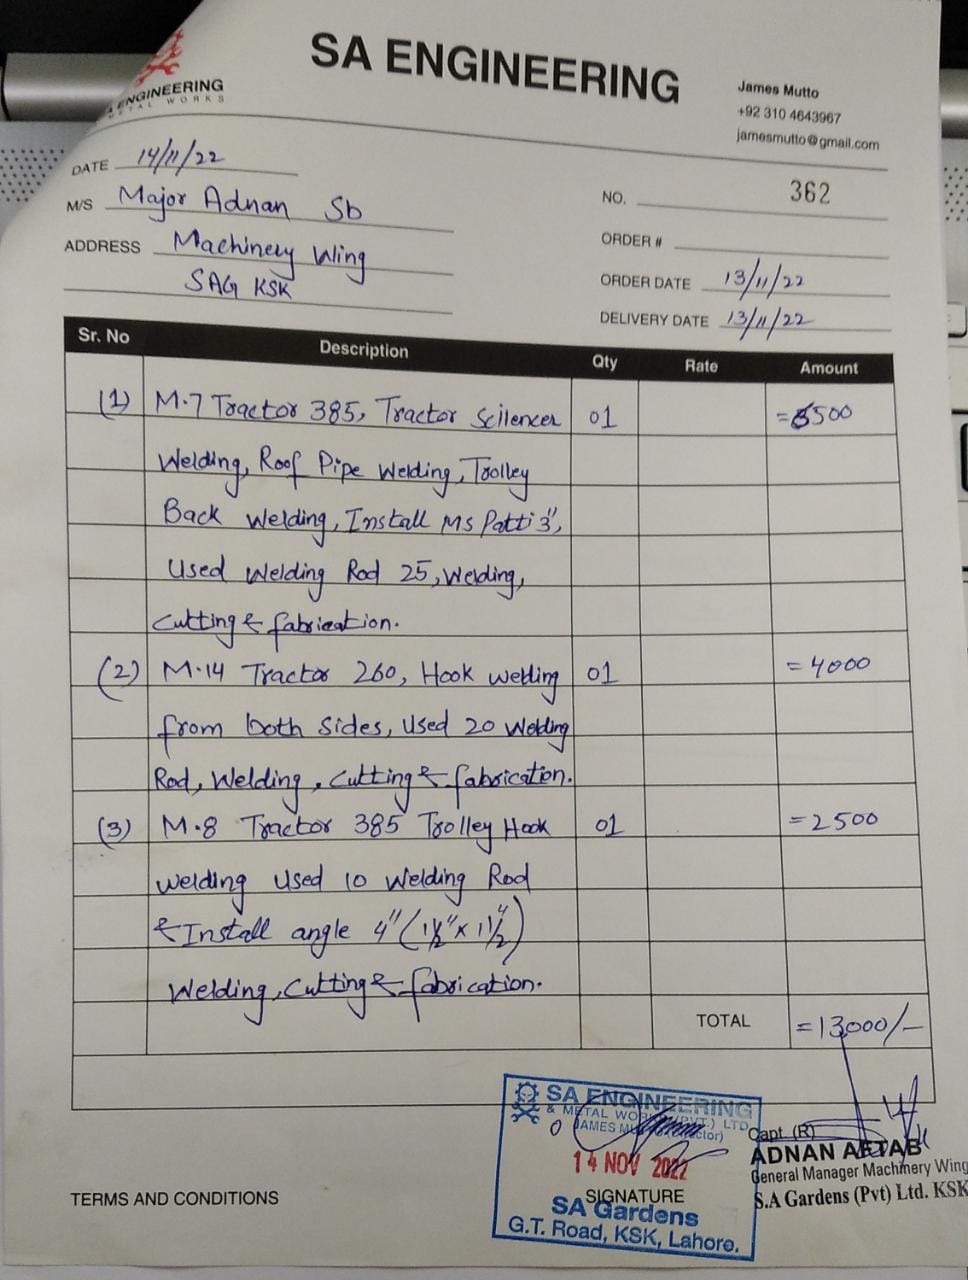 ENGINEERING
METAL WORKS
SA ENGINEERING
James Mutto
+92 310 4643967
jamesmutto@gmail.com
DATE 14/11/22
M/S Major Adnan Sb
ADDRESS Machinery Wing
SAG KSK
NO. 362
ORDER #
ORDER DATE 13/11/22
DELIVERY DATE 13/11/22
Sr. No Description Qty Rate Amount
(1) M.7 Tractor 385, Tractor Scilencer 01 =6500
Welding, Roof Pipe Welding, Trolley
Back Welding, Install Ms Patti 3",
Used Welding Rod 25, Welding,
Cutting & fabrication.
(2) M.14 Tractor 260, Hook welding 01 =4000
from both sides, Used 20 Welding
Rod, Welding, Cutting & fabrication.
(3) M.8 Tractor 385 Trolley Hook 01 =2500
Welding Used 10 Welding Rod
& Install angle 4" (1½" x 1½")
Welding, Cutting & fabrication.
TOTAL =13,000/-
SA ENGINEERING
& METAL WORKS (PVT.) LTD
JAMES MUTTO (Director)
14 NOV 2022
SIGNATURE
SA Gardens
G.T. Road, KSK, Lahore.
Capt. (R)
ADNAN AFTAB
General Manager Machinery Wing
S.A Gardens (Pvt) Ltd. KSK
TERMS AND CONDITIONS